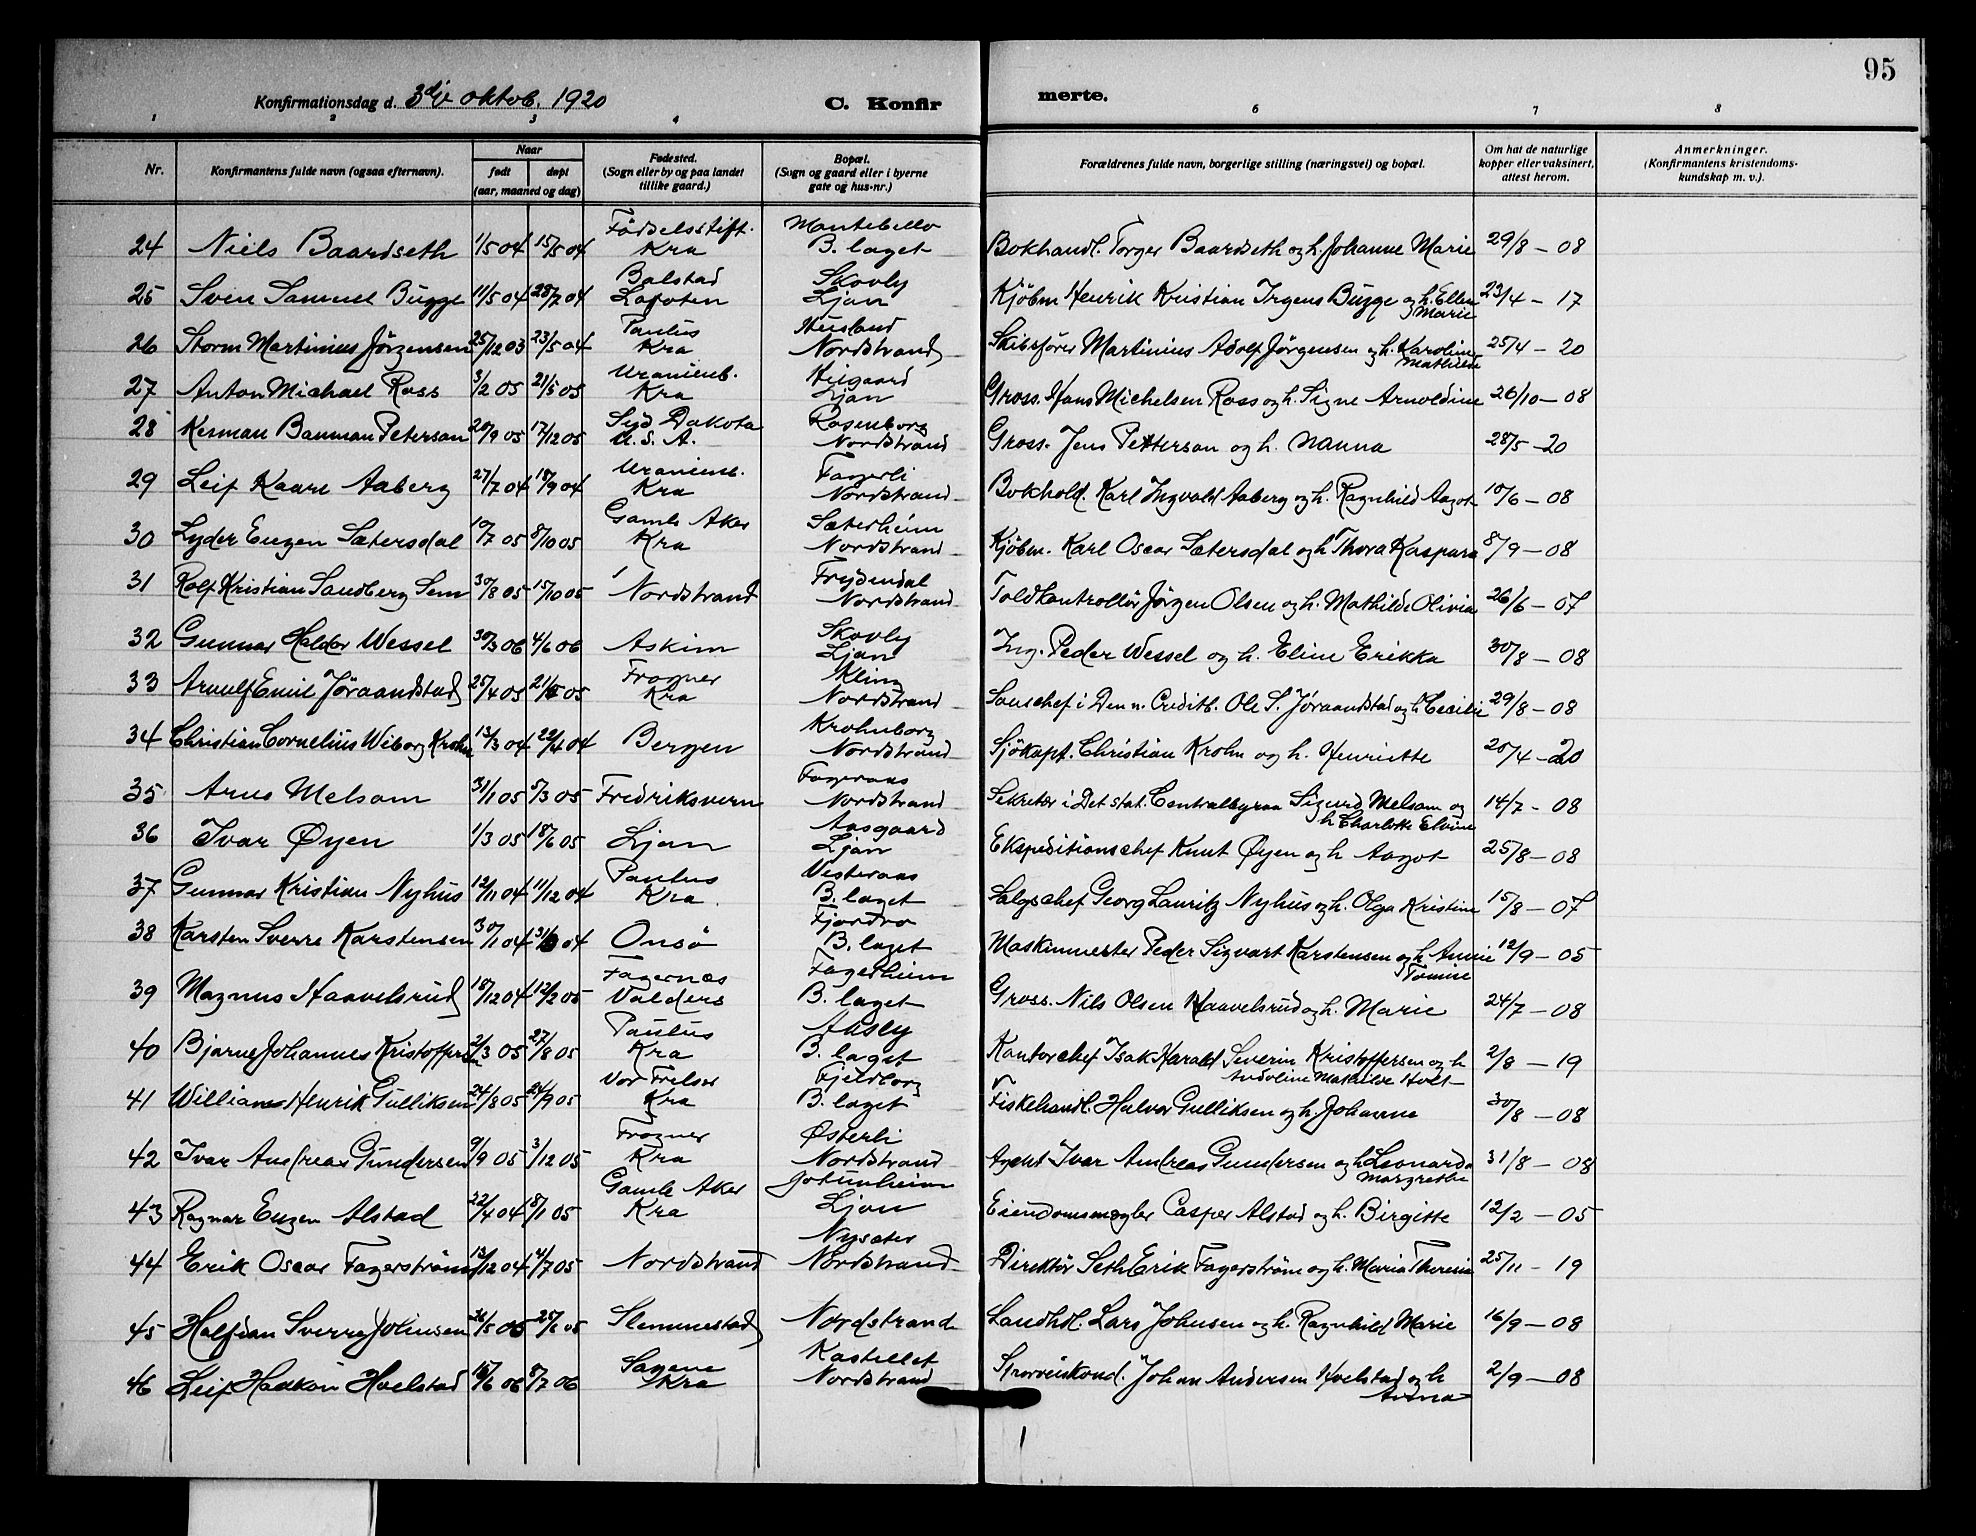 95
Konfirmationsdag d. 3die oktob. 1920 C. Konfir merte.
1 2 3 4 6 7 8
Nr.
Konfirmantens fulde navn (ogsaa efternavn).
Naar
født døpt
(aar, maaned og dag)
Fødested.
(Sogn eller by og paa landet
tillike gaard.)
Bopæl.
(Sogn og gaard eller i byerne
gate og hus-nr.)
Forældrenes fulde navn, borgerlige stilling (næringsvei) og bopæl.
Om hat de naturlige
kopper eller vaksinert,
attest herom.
Anmerkninger.
(Konfirmantens kristendoms-
kundskap m. v.).
Fødselsstift. Montebello
24 Niels Baardseth 1/5 04 15/5 04 Kra B. laget Bokhandl. Torger Baardseth og h. Johanne Marie 29/8 - 08
Balstad Skovly
25 Sven Samuel Bugge 11/5 04 28/7 04 Lofoten Ljan Kjøbm Henrik Kristian Irgens Bugge og h. Ellen 23/4 - 17
Marie
Paulus Husland
26 Storm Martinius Jörgensen 25/12 03 23/5 04 Kra Nordstrand Skibsfører Martinius Adolf Jörgensen og h. Karoline 25/4 - 20
Mathilde
Uranienb.
27 Anton Michael Ross 3/2 05 21/5 05 Kra Ljan Gross. Hans Michelsen Ross og h. Signe Arnoldine 26/10 - 08
Syd Dakota Rosenborg
28 Kerman Bauman Peterson 20/9 05 17/12 05 U.S.A. Nordstrand Gross. Jens Petterson og h. Nanna 28/5 - 20
Uranienb. Fagerli
29 Leif Kaare Aaberg 27/7 04 18/9 04 Kra Nordstrand Bokhold. Karl Ingvald Aaberg og h. Ragnhild Aagot 10/6 - 08
Gamle Aker Sæterheim
30 Lyder Eugen Sætersdal 19/7 05 8/10 05 Kra Nordstrand Kjöbm. Karl Oscar Sætersdal og h Thora Kaspara 8/9 - 08
Frydendal
31 Rolf Kristian Sandberg Sem 30/8 05 15/10 05 Nordstrand Nordstrand Toldkontrollör Jörgen Olsen og h. Mathilde Olivia 26/6 - 07
Skovly
32 Gunnar Haldor Wessel 30/3 06 4/6 06 Askim Ljan Ing. Peder Wessel og h. Eline Erikka 30/8 - 08
Frogner Kling
33 Arnulf Emil Jöraandstad 25/4 05 21/5 05 Kra Nordstrand i Den n. Creditb. Ole S. Jöraandstad og h Cecilie 29/8 - 08
Krohnborg
34 Christian Cornelius Wiborg Krohn 13/3 04 22/4 04 Bergen Nordstrand Sjökapt. Christian Krohn og h. Henriette 20/4 - 20
Fageraas
35 Arne Melsom 31/1 05 5/3 05 Fredriksvern Nordstrand Sekretær i Det stat. Centralbyraa Sigurd Melsom og 14/7 - 08
h Charlotte Elvine
Aasgaard
36 Ivar Øyen 1/3 05 18/6 05 Ljan Ljan Ekspeditionschef Knut Øyen og h Aagot 25/8 - 08
Paulus Vesteraas
37 Gunnar Kristian Nyhus 12/11 04 11/12 04 Kra. B. laget Salgschef Georg Lauritz Nyhus og h. Olga Kristine 15/8 - 07
Fjordro
38 Karsten Sverre Karstensen 30/1 04 31/3 04 Onsö B. laget Maskinmester Peder Sigvart Karstensen og h Annie 12/9 - 05
Tomine
Fagernæs Fagerheim
39 Magnus Haavelsrud 18/12 04 12/2 05 Valders B. laget Gross. Nils Olsen Haavelsrud og h. Marie 24/7 - 08
Paulus Aasly
40 Bjarne Johannes Kristoffersen 2/3 05 27/8 05 Kra B. laget Kontorchef Isak Harald Severin Kristoffersen og h 2/8 - 19
Andoline Mathilde Holt
Vor Frelser Fjeldborg
41 William Henrik Gulliksen 24/8 05 24/9 05 Kra B. laget Fiskehandl. Halvor Gulliksen og h. Johanna 30/8 - 08
Frogner Østerli
42 Ivar Andreas Gundersen 9/9 05 3/12 05 Kra Nordstrand Agent Ivar Andreas Gundersen og h Leonarda 31/8 - 08
Margrethe
Gamle Aker Jotunheim
43 Ragnar Eugen Alstad 22/4 04 8/1 05 Kra Ljan Eiendomsmægler Casper Alstad og h. Birgitte 12/2 - 05
Nysæter
44 Erik Oscar Fagerström 13/12 04 4/7 05 Nordstrand Nordstrand Direktör Seth Erik Fagerström og h. Maria Theresia 25/11 - 19
45 Halfdan Sverre Johnsen 26/5 05 25/6 05 Slemmestad Nordstrand Landhdl. Lars Johnsen og h. Ragnhild Marie 16/9 - 08
Sagene Kastellet
46 Leif Haakon Hoelstad 16/6 06 8/7 06 Kra Nordstrand Sporveiskond. Johan Andersen Hoelstad og h 2/9 - 08
Anna